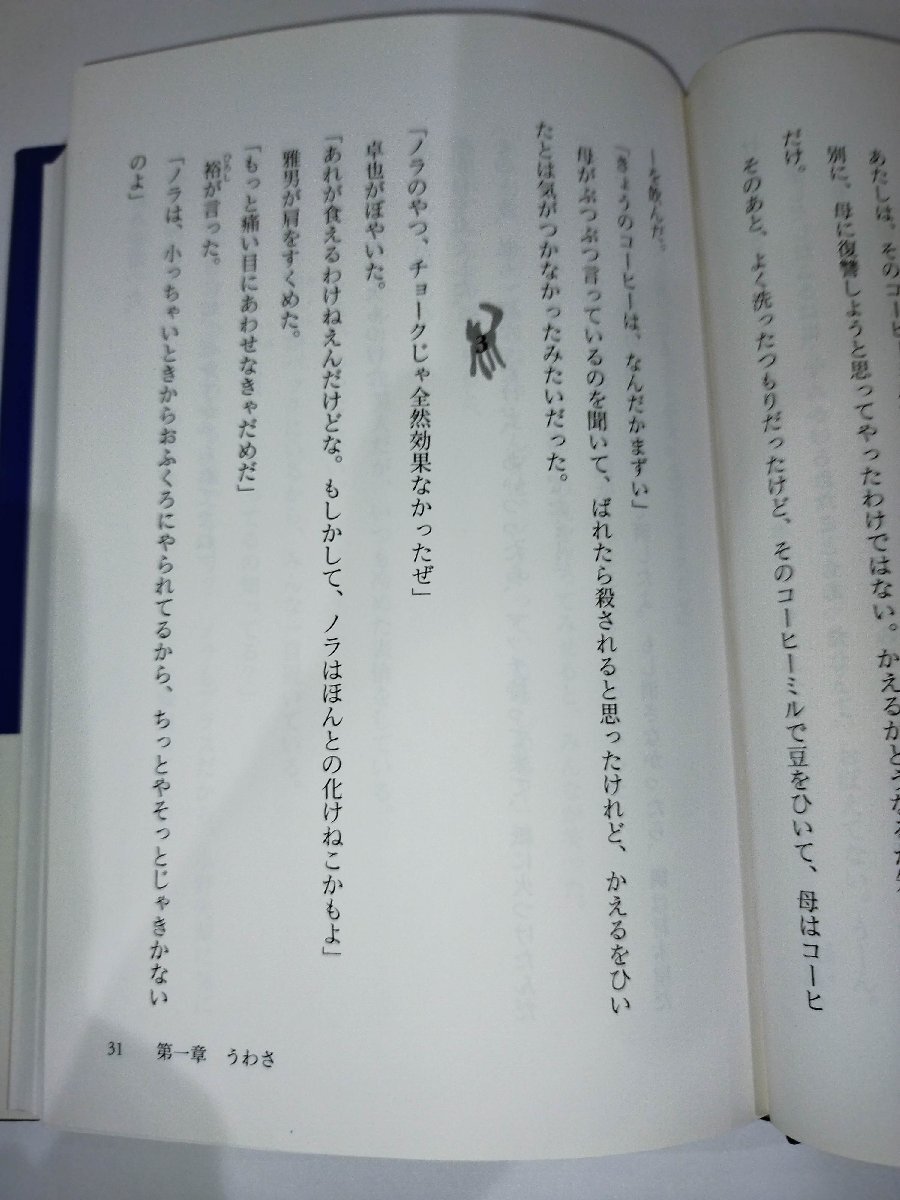 あたしは、そのコーヒー
別に、母に復讐しようと思ってやったわけではない。かえるがどうなるか
だけ。
そのあと、よく洗ったつもりだったけど、そのコーヒーミルで豆をひいて、母はコーヒ
ーを飲んだ。
「きょうのコーヒーは、なんだかまずい」
母がぶつぶつ言っているのを聞いて、ばれたら殺されると思ったけれど、かえるをひい
たとは気がつかなかったみたいだった。
3
「ノラのやつ、チョークじゃ全然効果なかったぜ」
卓也がぼやいた。
「あれが食えるわけねえんだけどな。もしかして、ノラはほんとの化けねこかもよ」
雅男が肩をすくめた。
「もっと痛い目にあわせなきゃだめだ」
裕が言った。
ひろし
「ノラは、小っちゃいときからおふくろにやられてるから、ちっとやそっとじゃきかない
のよ」
31 第一章 うわさ